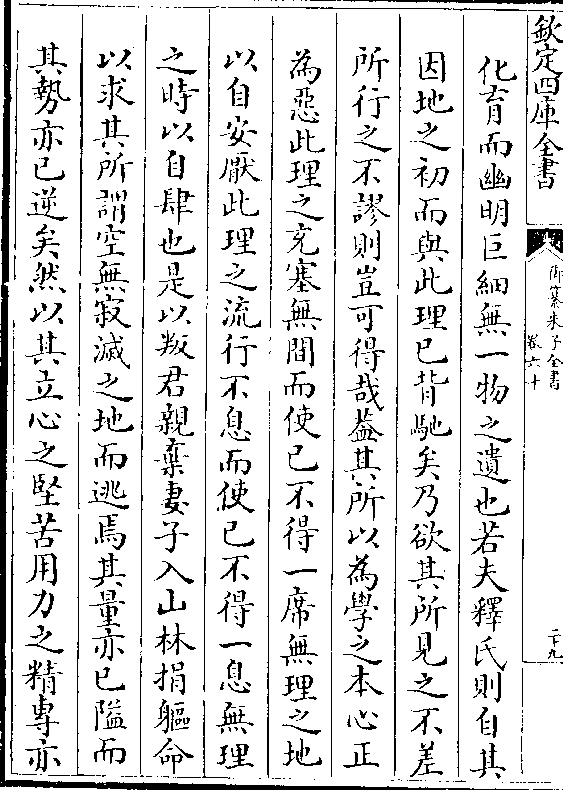 欽定四庫全書
御纂朱子全書
卷六十
二十九
化育而幽明巨細無一物之遺也若夫釋氏則自其
因地之初而與此理已背馳矣乃欲其所見之不差
所行之不謬則豈可得哉葢其所以為學之本心正
為惡此理之充塞無間而使已不得一席無理之地
以自安厭此理之流行不息而使已不得一息無理
之時以自肆也是以叛君親棄妻子入山林捐軀命
以求其所謂空無寂滅之地而逃焉其量亦已隘而
其勢亦已逆矣然以其立心之堅苦用力之精專亦